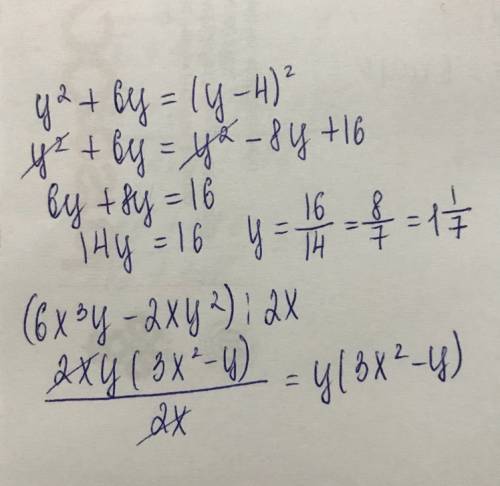 y² + 6y = (y - 4)²
y² + 6y = y² - 8y + 16
6y + 8y = 16
14y = 16 y = 16/14 = 8/7 = 1 1/7
(6x³y - 2xy²) : 2x
2xy(3x² - y)/2x = y(3x² - y)